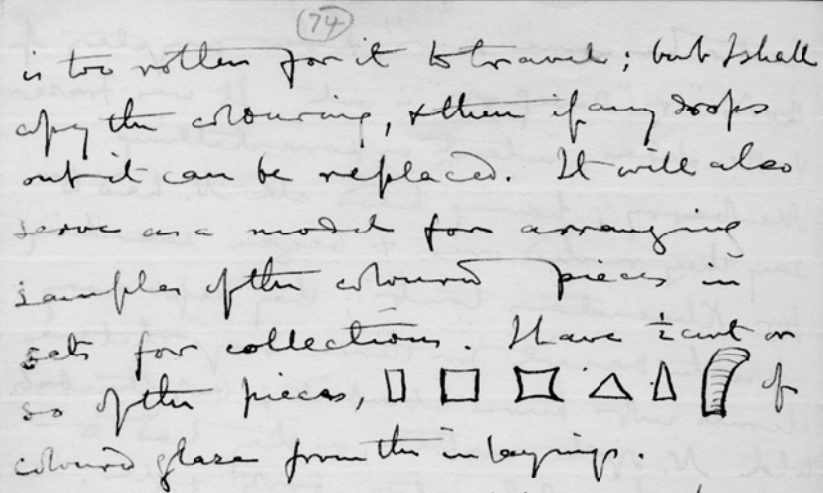 74
is too rotten for it to travel; but I shall
copy the colouring, & then if any drops
out it can be replaced. It will also
serve as a model for arranging
samples of the coloured pieces in
sets for collections. I have ½ cwt or
so of the pieces, of
coloured glaze from the inlayings.